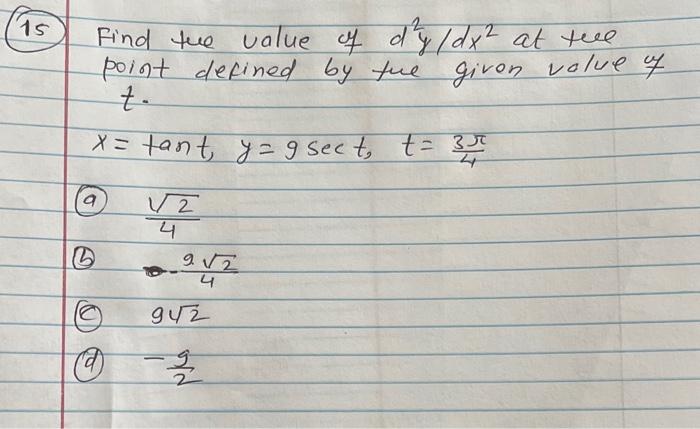 15 Find the value of d²y/dx² at the
point defined by the given value of
t.
x = tan t, y = 9 sec t, t = 3π/4
(a) √2/4
(b) -9√2/4
(c) 9√2
(d) -9/2